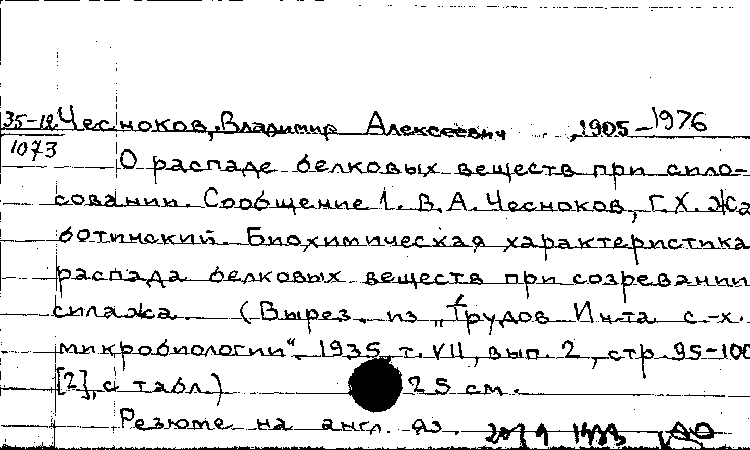 35-12 Чесноков, Владимир Алексеевич, 1905-1976
1073
О распаде белковых веществ при сило-
совании. Сообщение 1. В.А. Чесноков, Г.Х. Жа
ботинский. Биохимическая характеристика
распада белковых веществ при созревании
силажа. (Вырез. из „Трудов Ин-та с.-х.
микробиологии". 1935, т. VII, вып. 2, стр. 95-100
[2], с табл.) 25 см.
Резюме на англ. яз.